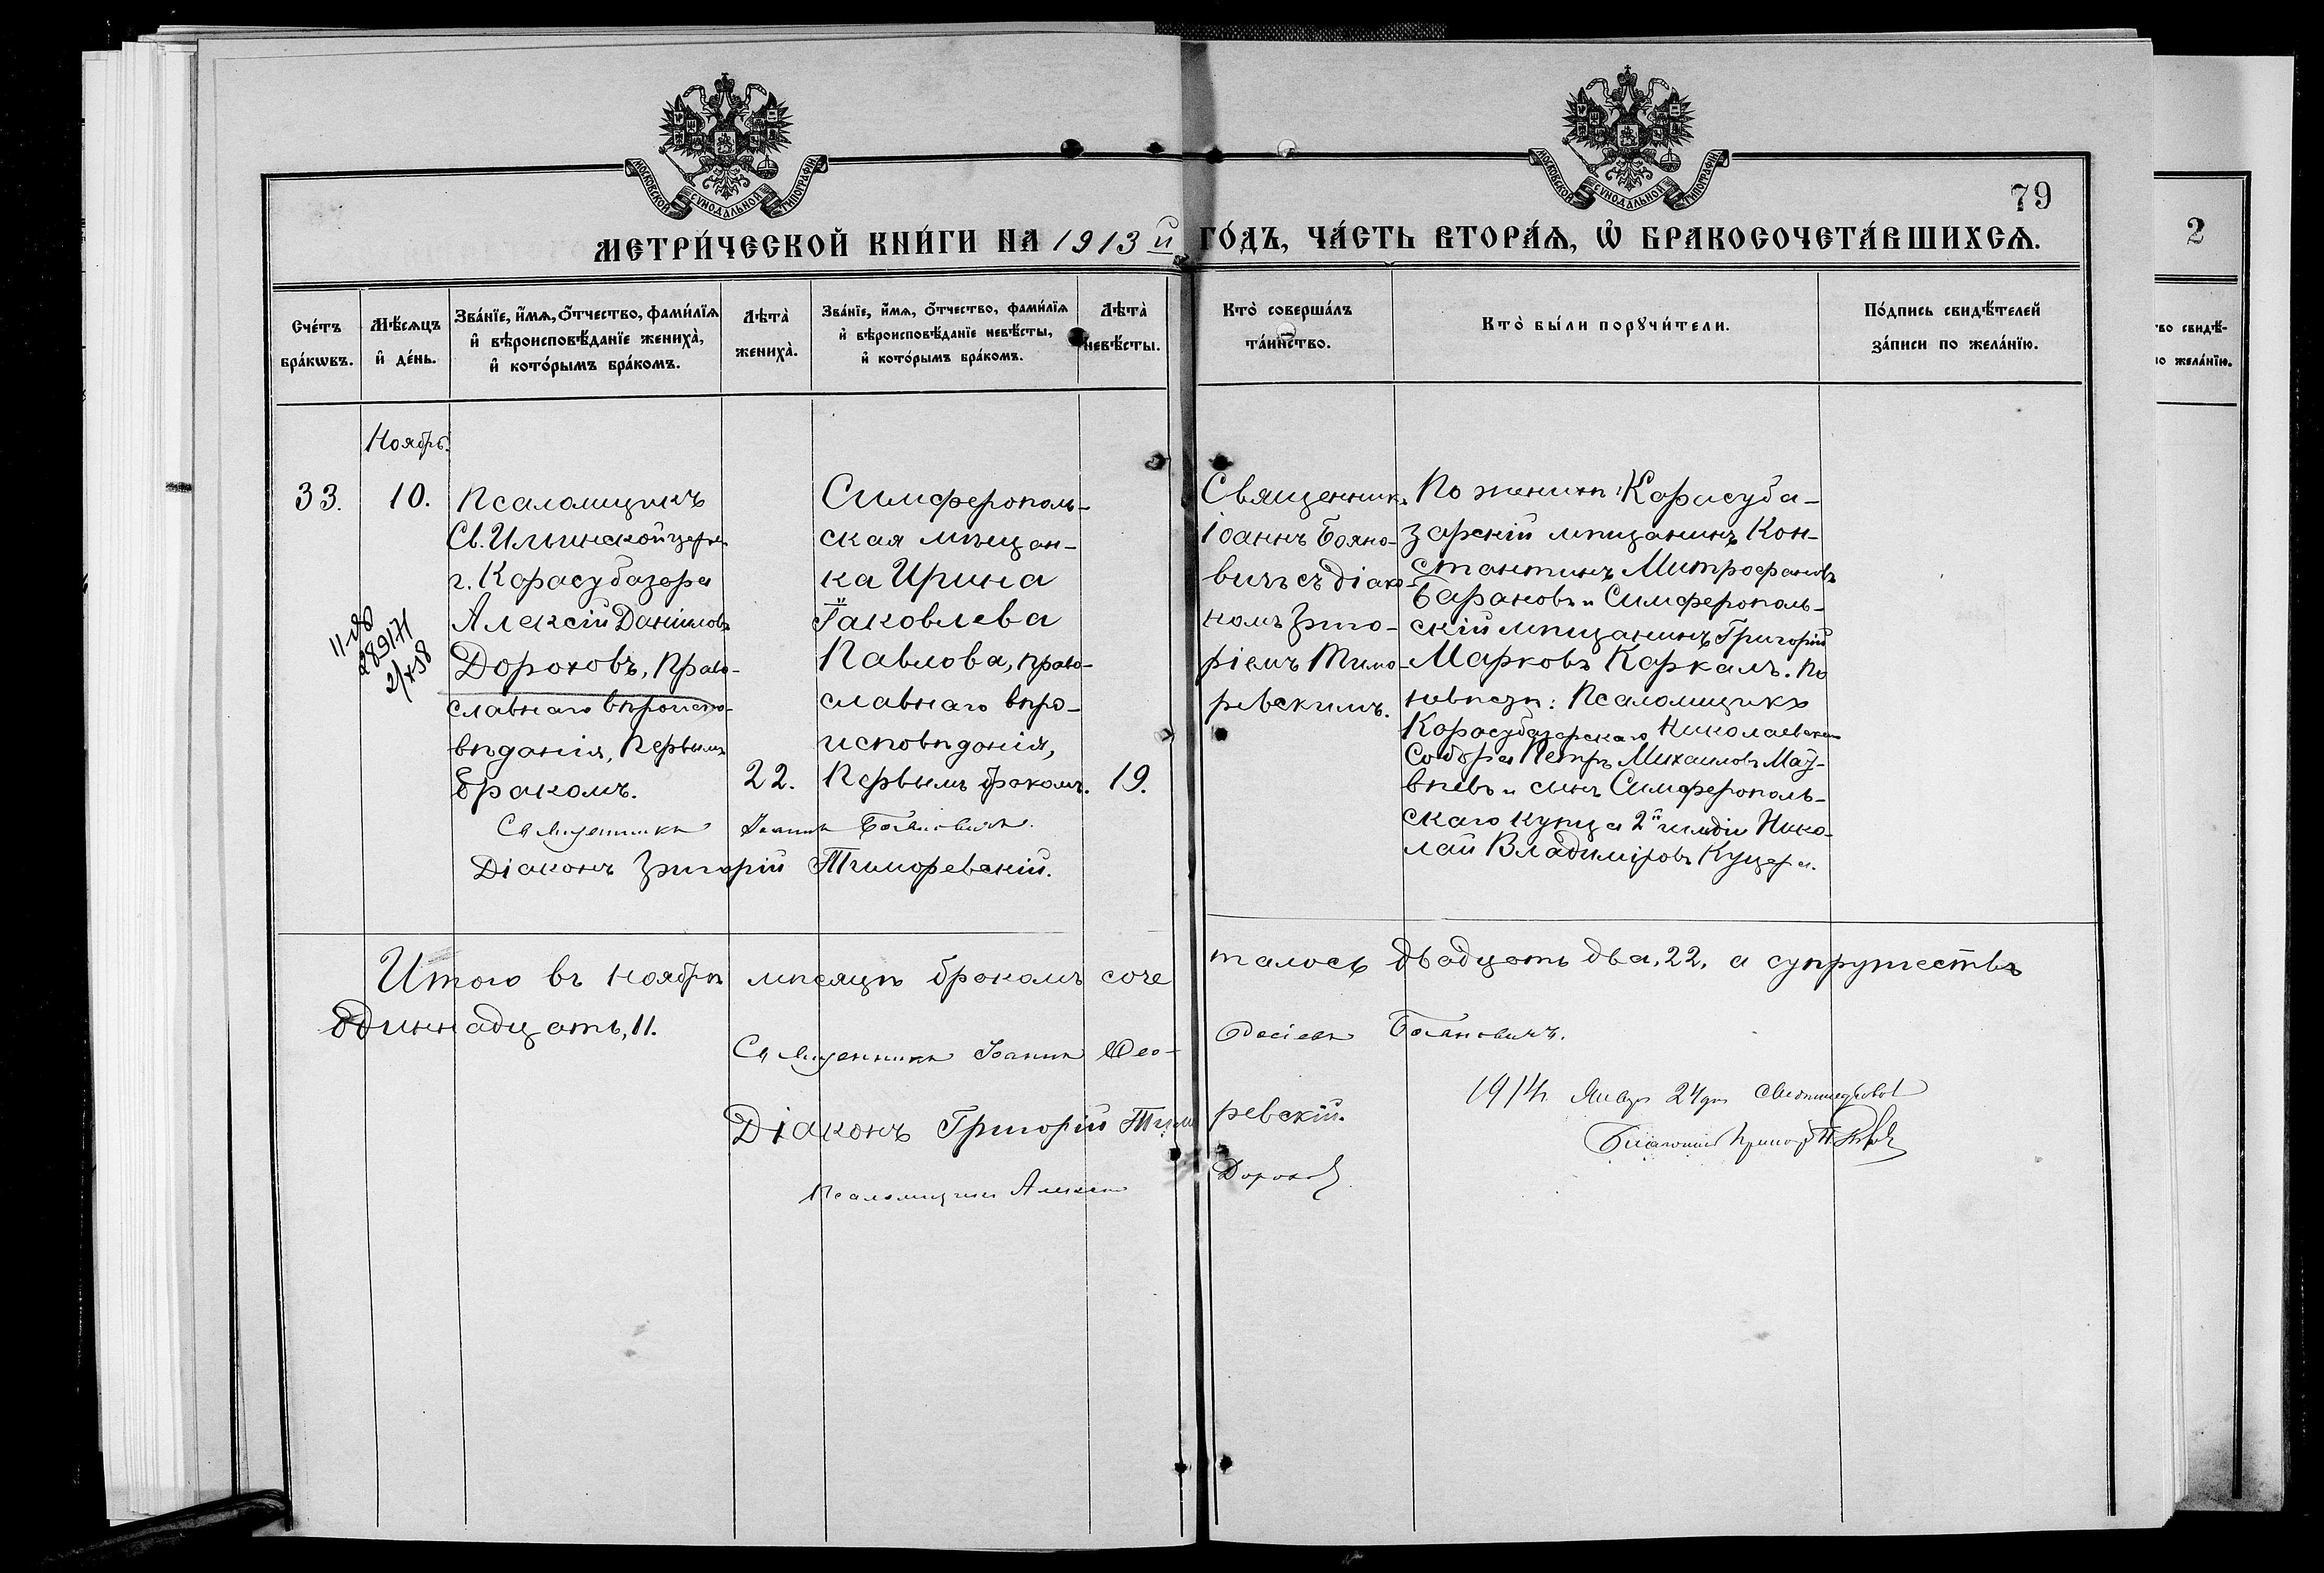 МОСКОВСКОЙ СѴНОДАЛЬНОЙ ТИПОГРАФІИ
МОСКОВСКОЙ СѴНОДАЛЬНОЙ ТИПОГРАФІИ
79
2
МЕТРИ́ЧЕСКОЙ КНИ́ГИ НА 1913й ГО́ДЪ, ЧА́СТЬ ВТОРА́Ѧ, Ѡ҆ БРАКОСОЧЕТА́ВШИХСѦ.
Сче́тъ бра́кѡвъ.
Мѣ́сѧцъ и҆ де́нь.
Зва́нїе, и҆́мѧ, ѻ҆́тчество, фами́лїѧ и҆ вѣроисповѣ́данїе жениха̀, и҆ кото́рымъ бра́комъ.
Лѣта̀ жениха̀.
Зва́нїе, и҆́мѧ, ѻ҆́тчество, фами́лїѧ и҆ вѣроисповѣ́данїе невѣ́сты, и҆ кото́рымъ бра́комъ.
Лѣта̀ невѣ́сты.
Кто̀ соверша́лъ та́инство.
Кто̀ бы́ли порꙋчи́тели.
По́дпись свидѣ́телей за́писи по жела́нїю.
во свидѣ́-
о жела́нїю.
Ноябрь.
33.
10.
Псаломщикъ
Св. Ильинской церк.
г. Карасубазара
Алексій Даніиловъ
Дороховъ, право-
славнаго вѣроиспо-
вѣданія, первымъ
бракомъ.
22.
Симферополь-
ская мѣщан-
ка Ирина
Іаковлева
Павлова, право-
славнаго вѣро-
исповѣданія,
первымъ бракомъ.
19.
Священникъ
Іоаннъ Бояно-
вичъ съ діако-
номъ Григо-
ріемъ Тимо-
ревскимъ.
По женихѣ: Карасуба-
зарскій мѣщанинъ Кон-
стантинъ Митрофановъ
Барановъ и Симферополь-
скій мѣщанинъ Григорій
Марковъ Каркалъ. По
невѣстѣ: Псаломщикъ
Карасубазарскаго Николаевскаго
Собора Петръ Михаиловъ Мат-
вѣевъ и сынъ Симферополь-
скаго купца 2й гильдіи Нико-
лай Владиміровъ Куцера.
Священникъ Іоаннъ Бояновичъ.
Діаконъ Григорій Тиморевскій.
Итого въ ноябрѣ мѣсяцѣ бракомъ соче
талось двадцать два, 22, а супружествъ
одиннадцать, 11.
Священникъ Іоаннъ Ѳео-
досіевъ Бояновичъ.
Діаконъ Григорій Тимо
ревскій.
Псаломщикъ Алексій
Дорохов
1914 Янвр 24 дня